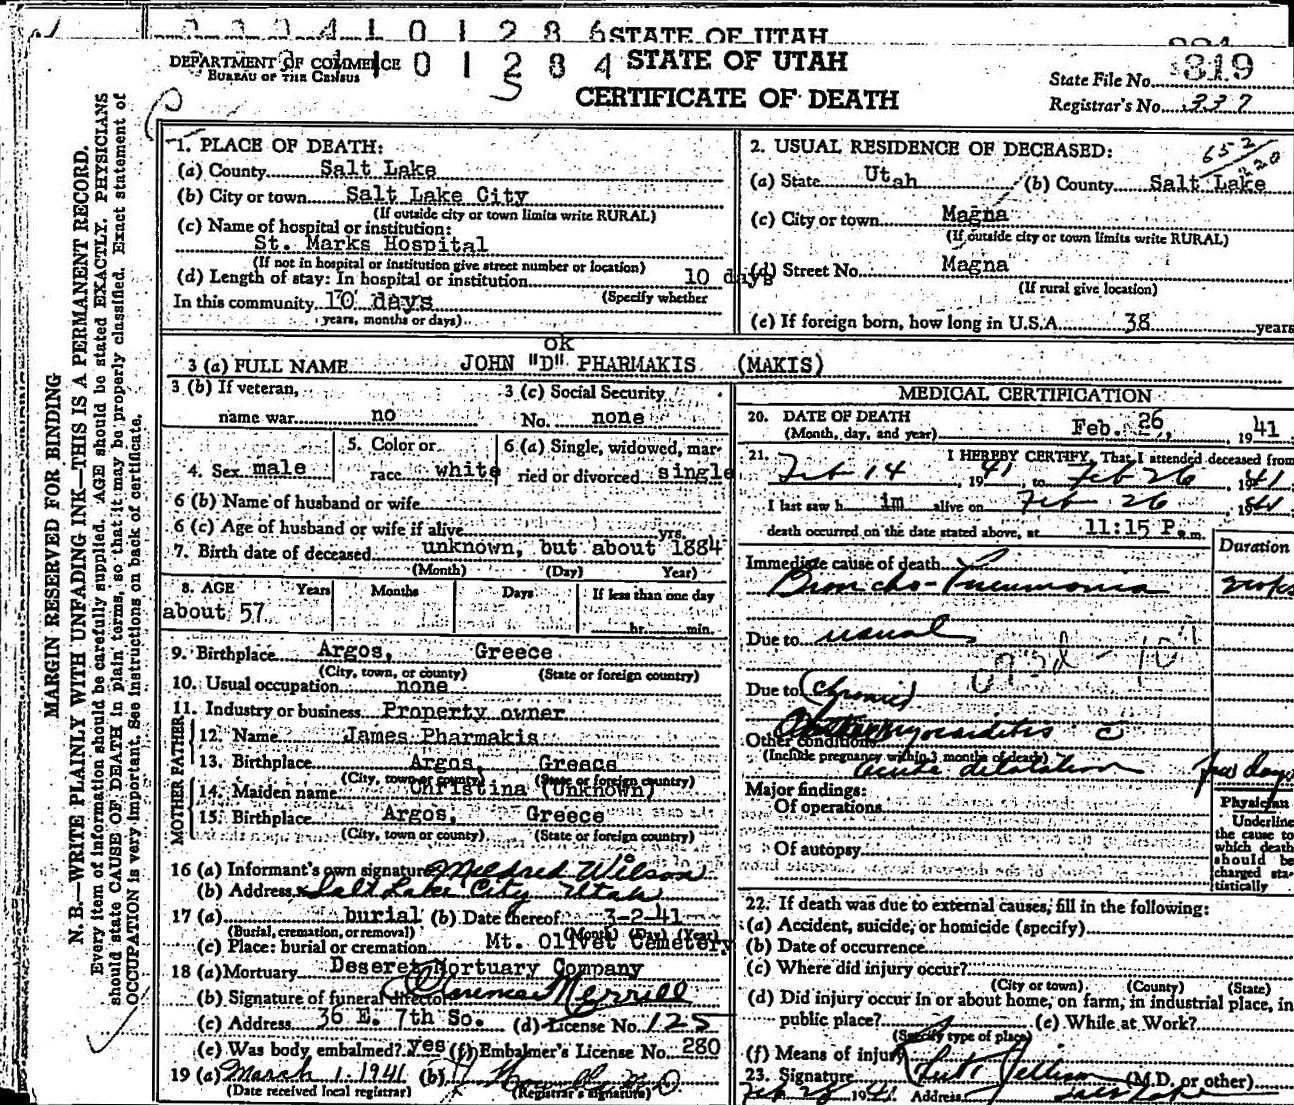 2 2 3 4 1 0 1 2 8 6 STATE OF UTAH
DEPARTMENT OF COMMERCE
BUREAU OF THE CENSUS
0 1 2 8 4
5
STATE OF UTAH
CERTIFICATE OF DEATH
State File No. 819
Registrar's No. 337
MARGIN RESERVED FOR BINDING
N. B.—WRITE PLAINLY WITH UNFADING INK—THIS IS A PERMANENT RECORD.
Every item of information should be carefully supplied. AGE should be stated EXACTLY. PHYSICIANS
should state CAUSE OF DEATH in plain terms, so that it may be properly classified. Exact statement of
OCCUPATION is very important. See instructions on back of certificate.
1. PLACE OF DEATH:
(a) County Salt Lake
(b) City or town Salt Lake City
(If outside city or town limits write RURAL)
(c) Name of hospital or institution:
St. Marks Hospital
(If not in hospital or institution give street number or location)
(d) Length of stay: In hospital or institution 10 days
In this community 10 days (Specify whether
years, months or days)
2. USUAL RESIDENCE OF DECEASED:
652
220
(a) State Utah (b) County Salt Lake
(c) City or town Magna
(If outside city or town limits write RURAL)
(d) Street No. Magna
(If rural give location)
(e) If foreign born, how long in U.S.A. 38 years
OK
3 (a) FULL NAME JOHN "D" PHARMAKIS (MAKIS)
3 (b) If veteran,
name war no
3 (c) Social Security
No. none
4. Sex male
5. Color or
race white
6 (a) Single, widowed, mar-
ried or divorced single
6 (b) Name of husband or wife
6 (c) Age of husband or wife if alive yrs.
7. Birth date of deceased unknown, but about 1884
(Month) (Day) Year)
8. AGE Years Months Days If less than one day
about 57
hr. min.
9. Birthplace Argos, Greece
(City, town, or county) (State or foreign country)
10. Usual occupation none
11. Industry or business Property owner
FATHER
12. Name James Pharmakis
13. Birthplace Argos, Greece
(City, town or county) (State or foreign country)
MOTHER
14. Maiden name Christina (Unknown)
15. Birthplace Argos, Greece
(City, town or county) (State or foreign country)
16 (a) Informant's own signature Mildred Wilson
(b) Address Salt Lake City Utah
17 (a) burial (b) Date thereof 3-2-41
(Burial, cremation, or removal) (Month) (Day) (Year)
(c) Place: burial or cremation Mt. Olivet Cemetery
18 (a) Mortuary Deseret Mortuary Company
(b) Signature of funeral director Clarence Merrill
(c) Address 36 E. 7th So. (d) License No. 125
(e) Was body embalmed? yes (f) Embalmer's License No. 280
19 (a) March 1 1941 (b) M.D.
(Date received local registrar) (Registrar's signature)
MEDICAL CERTIFICATION
20. DATE OF DEATH
(Month, day, and year) Feb. 26, 1941
21. I HEREBY CERTIFY, That I attended deceased from
Feb 14, 1941 to Feb 26, 1941
I last saw him alive on Feb 26, 1941
death occurred on the date stated above, at 11:15 P.m.
Duration
Immediate cause of death
Broncho-Pneumonia
Due to usual
Due to (chronic)
myocarditis c
Other conditions
(Include pregnancy within 3 months of death)
acute dilatation few days
Major findings:
Of operations
Of autopsy
Physician
Underline
the cause to
which death
should be
charged sta-
tistically
22. If death was due to external causes, fill in the following:
(a) Accident, suicide, or homicide (specify)
(b) Date of occurrence
(c) Where did injury occur?
(City or town) (County) (State)
(d) Did injury occur in or about home, on farm, in industrial place, in
public place? (e) While at Work?
(Specify type of place)
(f) Means of injury
23. Signature (M.D. or other)
Feb 28 1941 Address Salt Lake